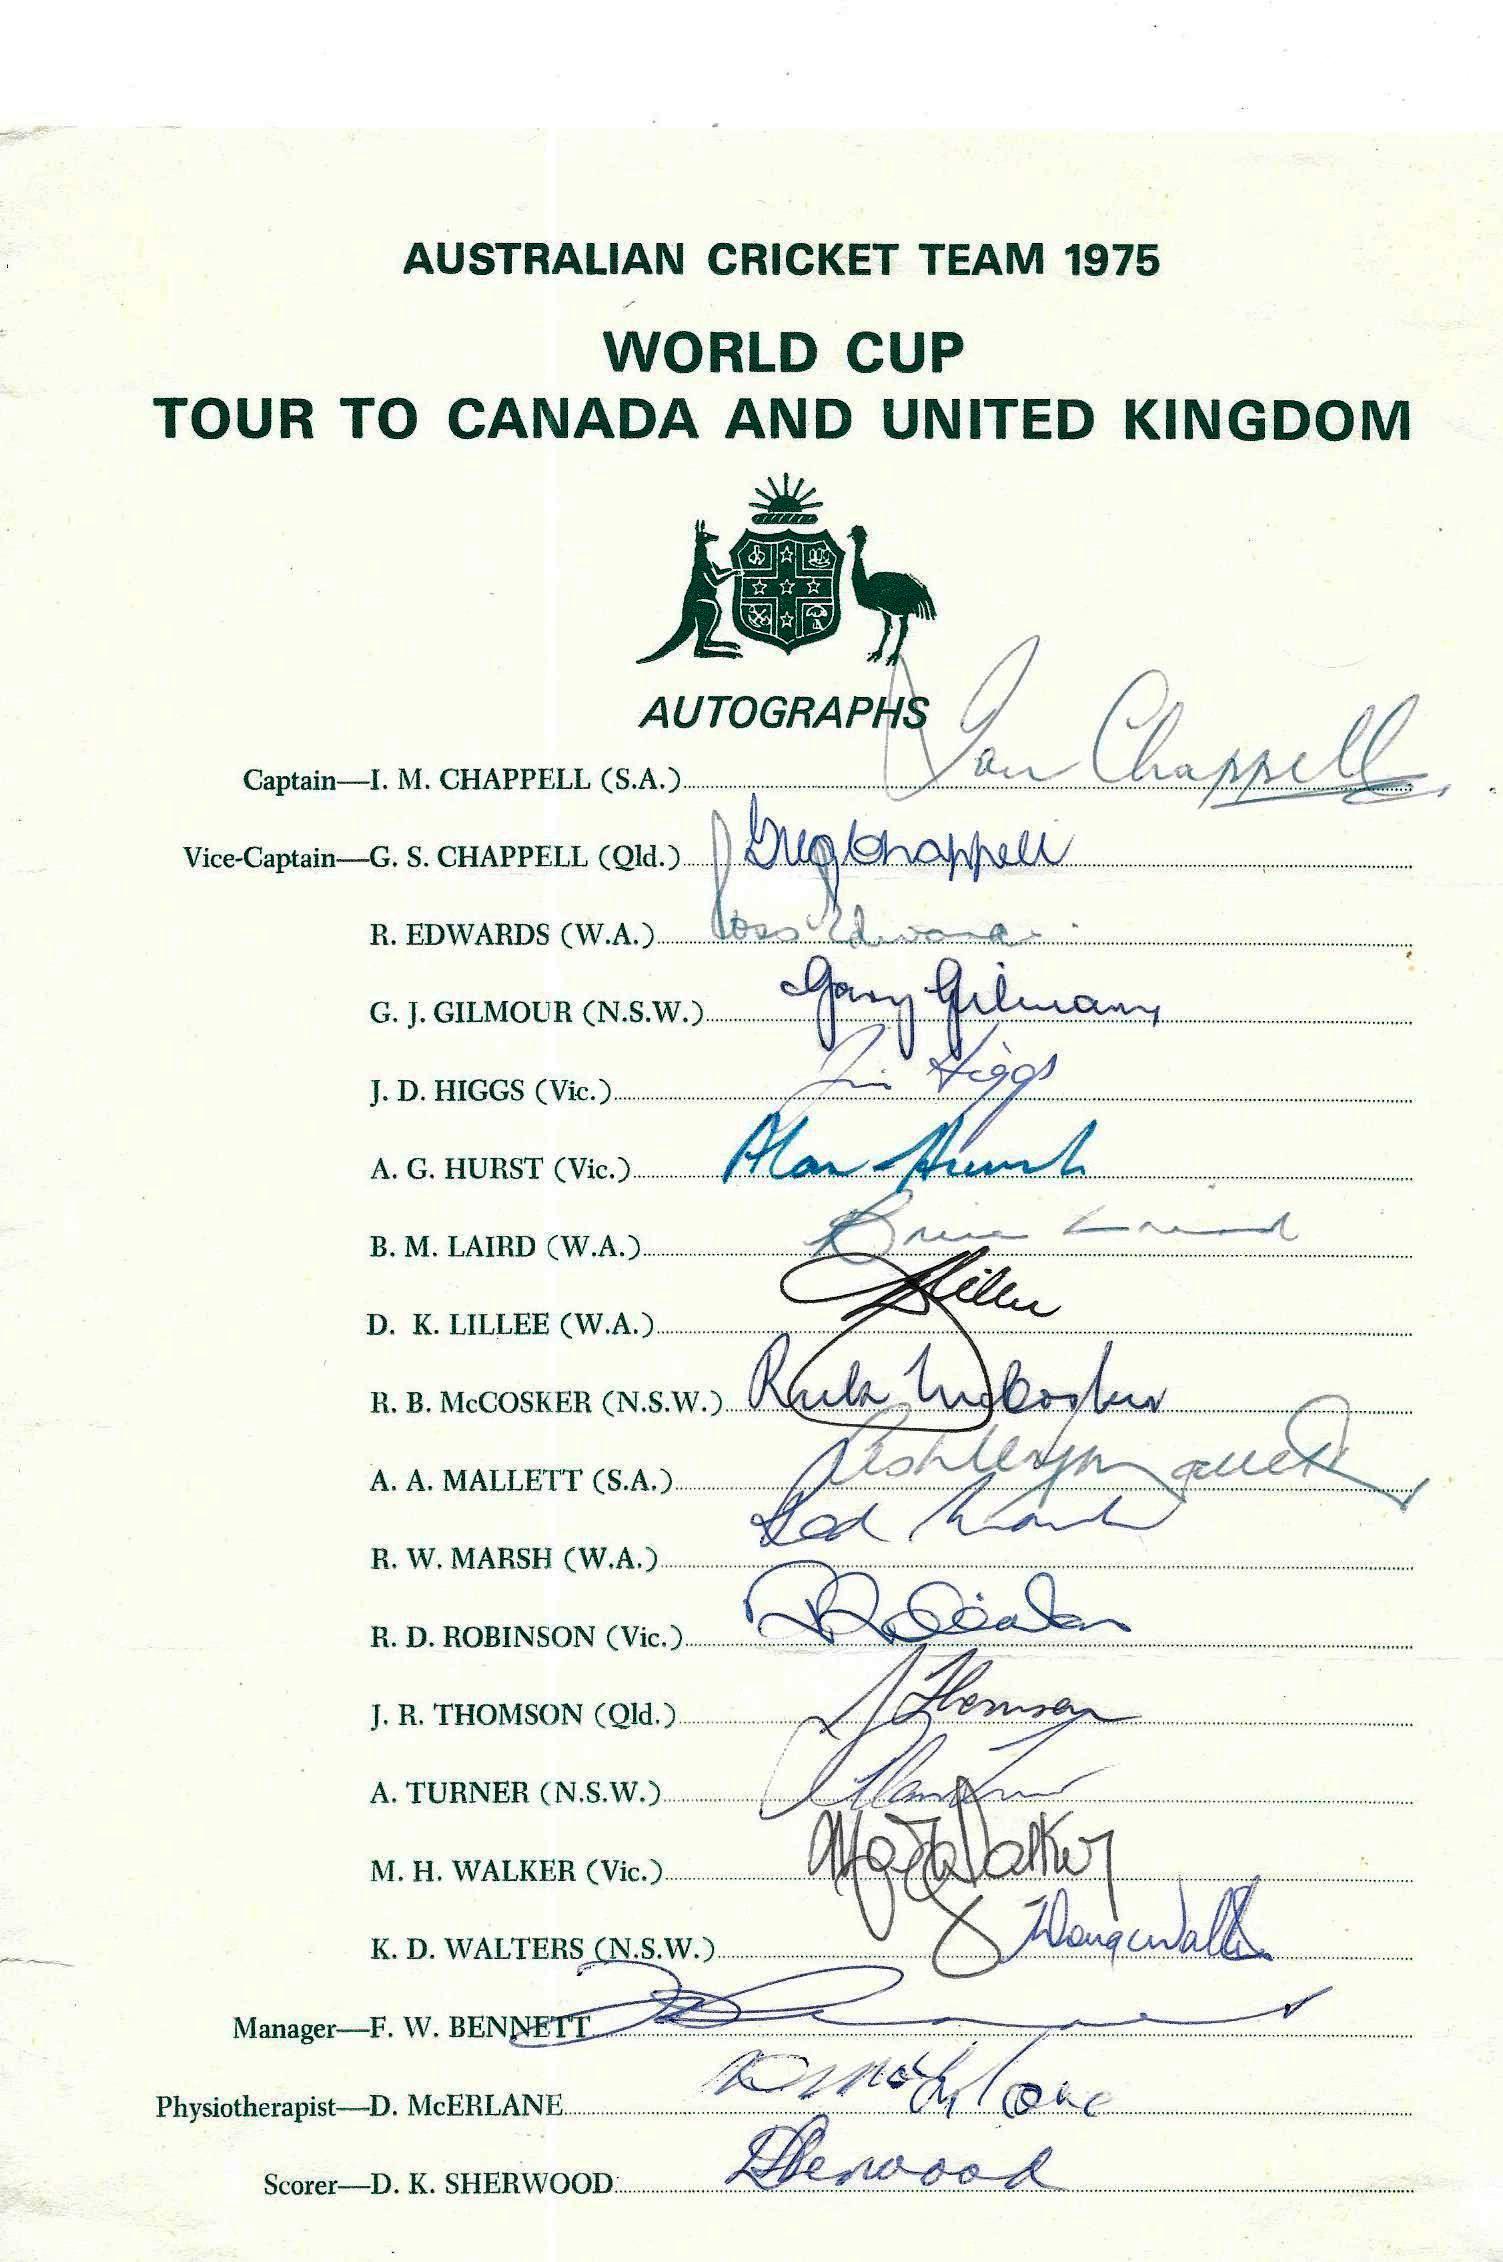 AUSTRALIAN CRICKET TEAM 1975
WORLD CUP
TOUR TO CANADA AND UNITED KINGDOM
AUTOGRAPHS
Captain—I. M. CHAPPELL (S.A.) Ian Chappell
Vice-Captain—G. S. CHAPPELL (Qld.) Greg Chappell
R. EDWARDS (W.A.) Ross Edwards
G. J. GILMOUR (N.S.W.) Gary Gilmour
J. D. HIGGS (Vic.) Jim Higgs
A. G. HURST (Vic.) Alan Hurst
B. M. LAIRD (W.A.) Bruce Laird
D. K. LILLEE (W.A.) Lillee
R. B. McCOSKER (N.S.W.) Rick McCosker
A. A. MALLETT (S.A.) Ashley Mallett
R. W. MARSH (W.A.) Rod Marsh
R. D. ROBINSON (Vic.)
J. R. THOMSON (Qld.) J Thomson
A. TURNER (N.S.W.) Alan Turner
M. H. WALKER (Vic.) Max Walker
K. D. WALTERS (N.S.W.) Doug Walters
Manager—F. W. BENNETT
Physiotherapist—D. McERLANE D McErlane
Scorer—D. K. SHERWOOD D Sherwood